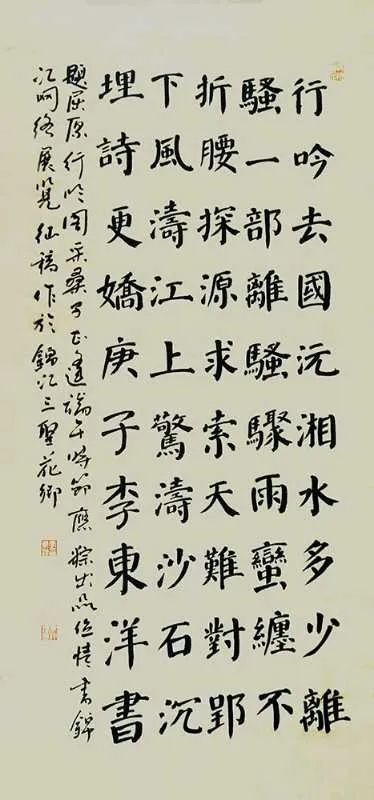 行吟去國沅湘水多少離
騷一部離騷驟雨蠻纏不
折腰探源求索天難對郢
下風濤江上驚濤沙石沉
埋詩更嬌庚子李東洋書
題屈原行吟圖采桑子正逢端午時節應粽品位情書錦
江網絡展覽征稿作於錦江三聖花鄉